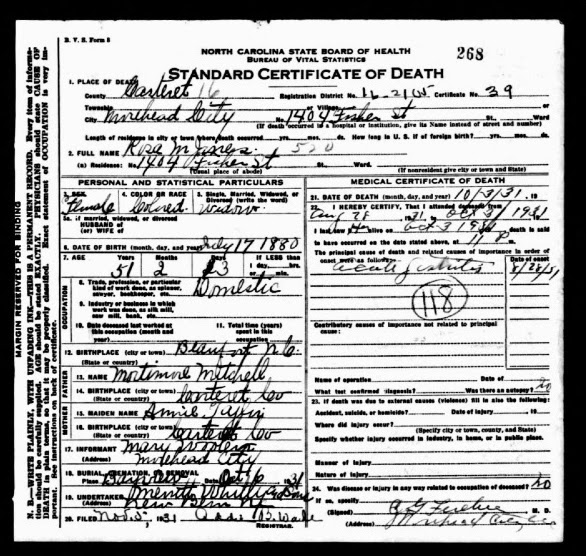 B. V. S. Form 8
NORTH CAROLINA STATE BOARD OF HEALTH
BUREAU OF VITAL STATISTICS
268
STANDARD CERTIFICATE OF DEATH
1. PLACE OF DEATH
County Carteret 16 Registration District No. Certificate No. 39
Township or Village
City Morehead City No. 1404 Fisher St St., Ward
(If death occurred in a hospital or institution, give its Name instead of street and number)
Length of residence in city or town where death occurred yrs. mos. ds. How long in U. S. if of foreign birth? yrs. mos. ds.
2. FULL NAME Rosa M
(a) Residence: No. 1404 Fisher St St., Ward.
(Usual place of abode) (If nonresident give city or town and State)
PERSONAL AND STATISTICAL PARTICULARS
3. SEX 4. COLOR OR RACE 5. Single, Married, Widowed, or Divorced (write the word)
Female Colored Widow
5a. If married, widowed, or divorced
HUSBAND of
(or) WIFE of
6. DATE OF BIRTH (month, day, and year) July 17 1880
7. AGE If LESS than
1 day, hrs.
or min.
51 2
8. Trade, profession, or particular kind of work done, as spinner, sawyer, bookkeeper, etc. Domestic
9. Industry or business in which work was done, as silk mill, saw mill, bank, etc.
10. Date deceased last worked at this occupation (month and year)
11. Total time (years) spent in this occupation
12. BIRTHPLACE (city or town) Beaufort N.C.
(State or country)
13. NAME Mortimore Mitchell
14. BIRTHPLACE (city or town) Carteret Co
(State or country)
15. MAIDEN NAME Annie
16. BIRTHPLACE (city or town) Carteret Co
(State or country)
17. INFORMANT Mary
(Address) Morehead City
18. BURIAL, CREMATION, OR REMOVAL
Place Bayview Date Oct 6 1931
19. UNDERTAKER
(Address) New Bern N.C.
20. FILED Nov. 5, 1931
REGISTRAR.
MEDICAL CERTIFICATE OF DEATH
21. DATE OF DEATH (month, day, and year) 10/3/31. 19
22. I HEREBY CERTIFY, That I attended deceased from
Aug 28 31 to Oct 3 1931
I last saw alive on Oct 3 1931 death is said
to have occurred on the date stated above, at 11 P m.
The principal cause of death and related causes of importance in order of onset were as follows: Date of onset
Acute 8/28/31
118
Contributory causes of importance not related to principal cause:
Name of operation Date of
What test confirmed diagnosis? Was there an autopsy? no
23. If death was due to external causes (violence) fill in also the following:
Accident, suicide, or homicide? Date of injury 19
Where did injury occur?
(Specify city or town, county, and State)
Specify whether injury occurred in industry, in home, or in public place.
Manner of injury
Nature of injury
24. Was disease or injury in any way related to occupation of deceased? no
If so, specify
(Signed) M. D.
(Address) Morehead City
MARGIN RESERVED FOR BINDING
N. B.—WRITE PLAINLY, WITH UNFADING INK—THIS IS A PERMANENT RECORD. Every item of information should be carefully supplied. AGE should be stated EXACTLY. PHYSICIANS should state CAUSE OF DEATH in plain terms, so that it may be properly classified. Exact statement of OCCUPATION is very important. See instructions on back of certificate.
OCCUPATION
FATHER
MOTHER